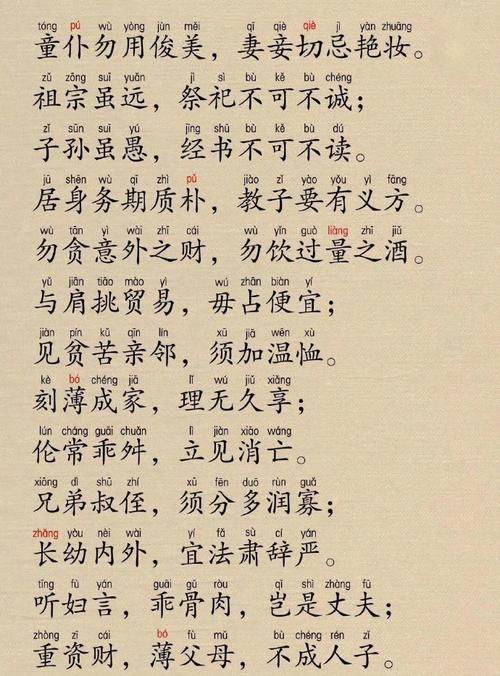 tóng pú wù yòng jùn měi qī qiè qiè jì yàn zhuāng
童仆勿用俊美，妻妾切忌艳妆。
zǔ zōng suī yuǎn jì sì bù kě bù chéng
祖宗虽远，祭祀不可不诚；
zǐ sūn suī yú jīng shū bù kě bù dú
子孙虽愚，经书不可不读。
jū shēn wù qī zhì pǔ jiào zǐ yào yǒu yì fāng
居身务期质朴，教子要有义方。
wù tān yì wài zhī cái wù yǐn guò liàng zhī jiǔ
勿贪意外之财，勿饮过量之酒。
yǔ jiān tiāo mào yì wú zhān biàn yí
与肩挑贸易，毋占便宜；
jiàn pín kǔ qīn lín xū jiā wēn xù
见贫苦亲邻，须加温恤。
kè bó chéng jiā lǐ wú jiǔ xiǎng
刻薄成家，理无久享；
lún cháng guāi chuǎn lì jiàn xiāo wáng
伦常乖舛，立见消亡。
xiōng dì shū zhí xū fēn duō rùn guǎ
兄弟叔侄，须分多润寡；
zhǎng yòu nèi wài yí fǎ sù cí yán
长幼内外，宜法肃辞严。
tīng fù yán guāi gǔ ròu qǐ shì zhàng fū
听妇言，乖骨肉，岂是丈夫；
zhòng zī cái bó fù mǔ bù chéng rén zǐ
重资财，薄父母，不成人子。